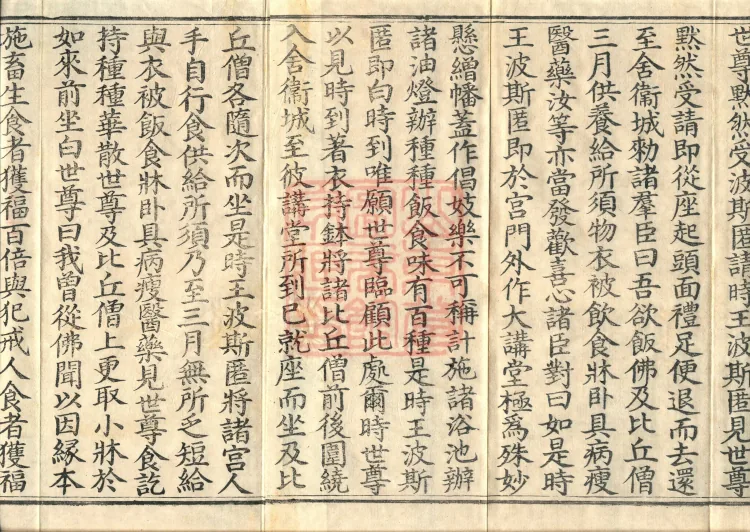 世尊黙然受波斯匿請時王波斯匿見世尊
黙然受請即從座起頭面禮足便退而去還
至舍衞城勑諸羣臣曰吾欲飯佛及比丘僧
三月供養給所須物衣被飲食牀卧具病瘦
醫藥汝等亦當發歡喜心諸臣對曰如是時
王波斯匿即於宮門外作大講堂極爲殊妙
懸繒幡蓋作倡妓樂不可稱計施諸浴池辦
諸油燈辦種種飯食味有百種是時王波斯
匿即白時到唯願世尊臨顧此處爾時世尊
以見時到著衣持鉢將諸比丘僧前後圍繞
入舍衞城至彼講堂所到已就座而坐及比
丘僧各隨次而坐是時王波斯匿將諸宮人
手自行食供給所須乃至三月無所乏短給
與衣被飯食牀卧具病瘦醫藥見世尊食訖
持種種華散世尊及比丘僧上更取小牀於
如來前坐白世尊曰我曾從佛聞以因緣本
施畜生食者獲福百倍與犯戒人食者獲福